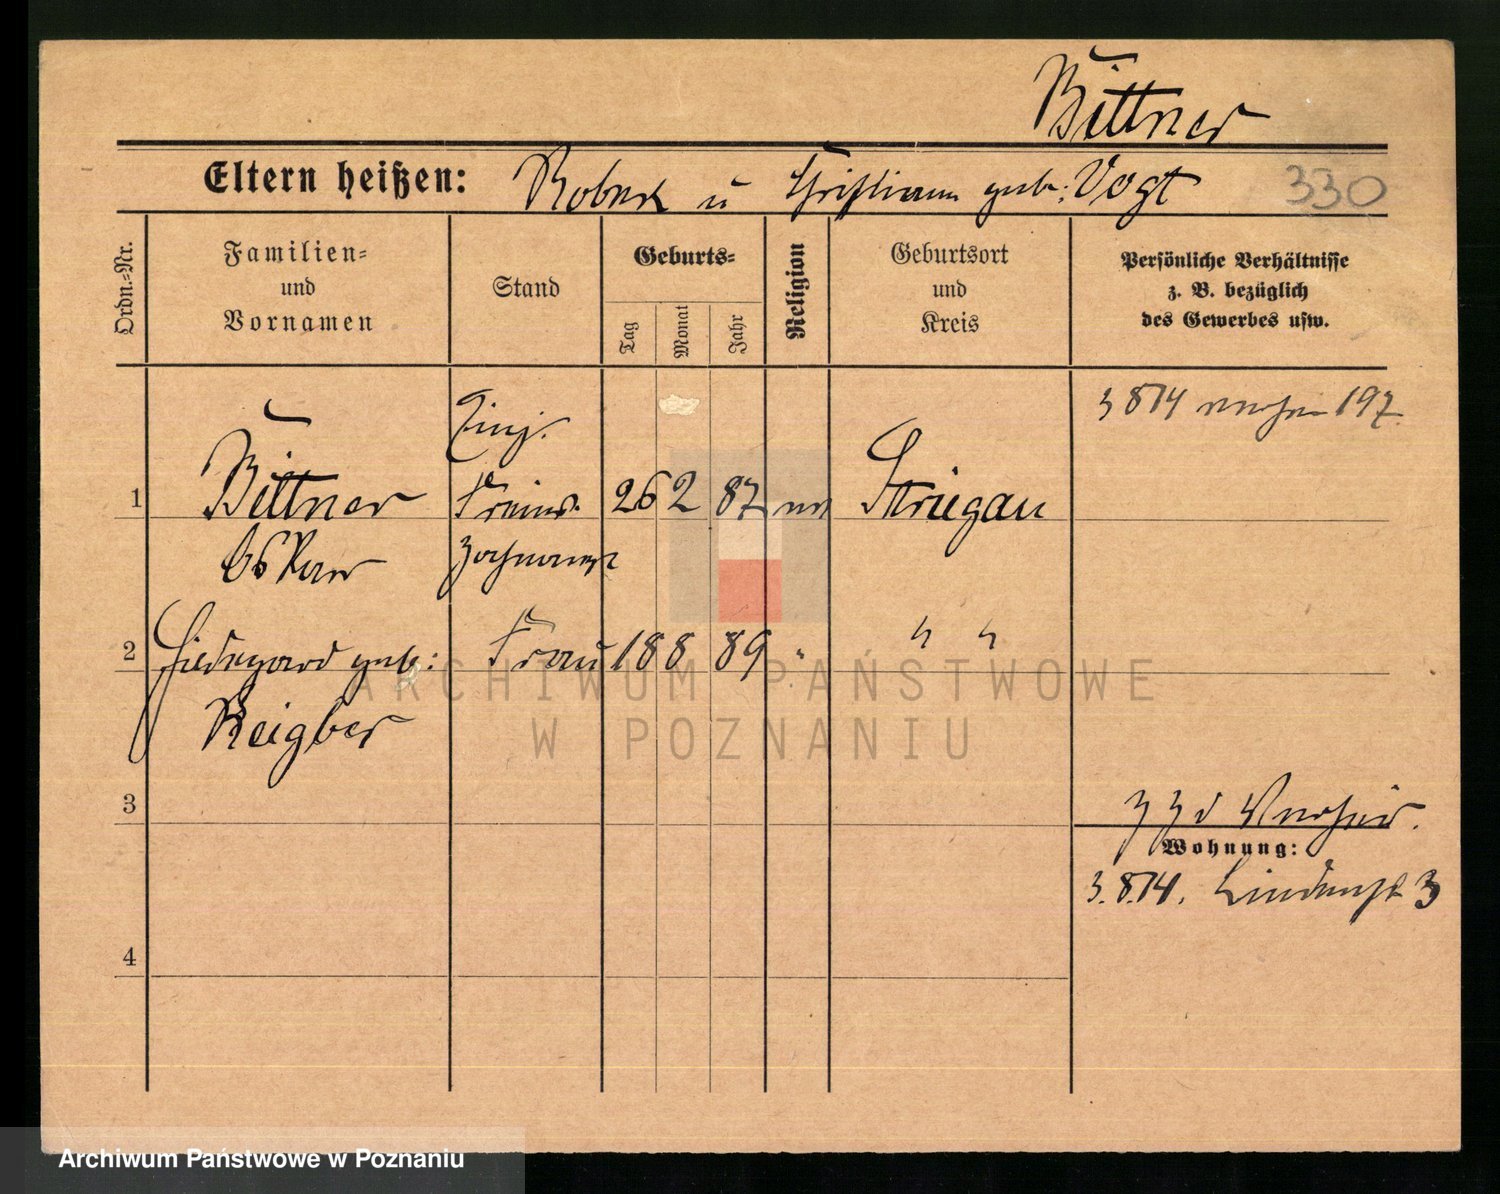 Bittner
Eltern heißen: Robert u Christiane geb: Vogt 330
Ordn.=Nr.
Familien=
und
Vornamen
Stand
Geburts=
Tag
Monat
Jahr
Religion
Geburtsort
und
Kreis
Persönliche Verhältnisse
z. B. bezüglich
des Gewerbes usw.
3 8 14 197
1 Bittner 26 2 87 Striegau
Oskar
2 Hildegard geb: Frau 18 8 89 " " "
Reigber
3
Wohnung:
3.8.14. Lindenst 3
4
ARCHIWUM PAŃSTWOWE
W POZNANIU
Archiwum Państwowe w Poznaniu